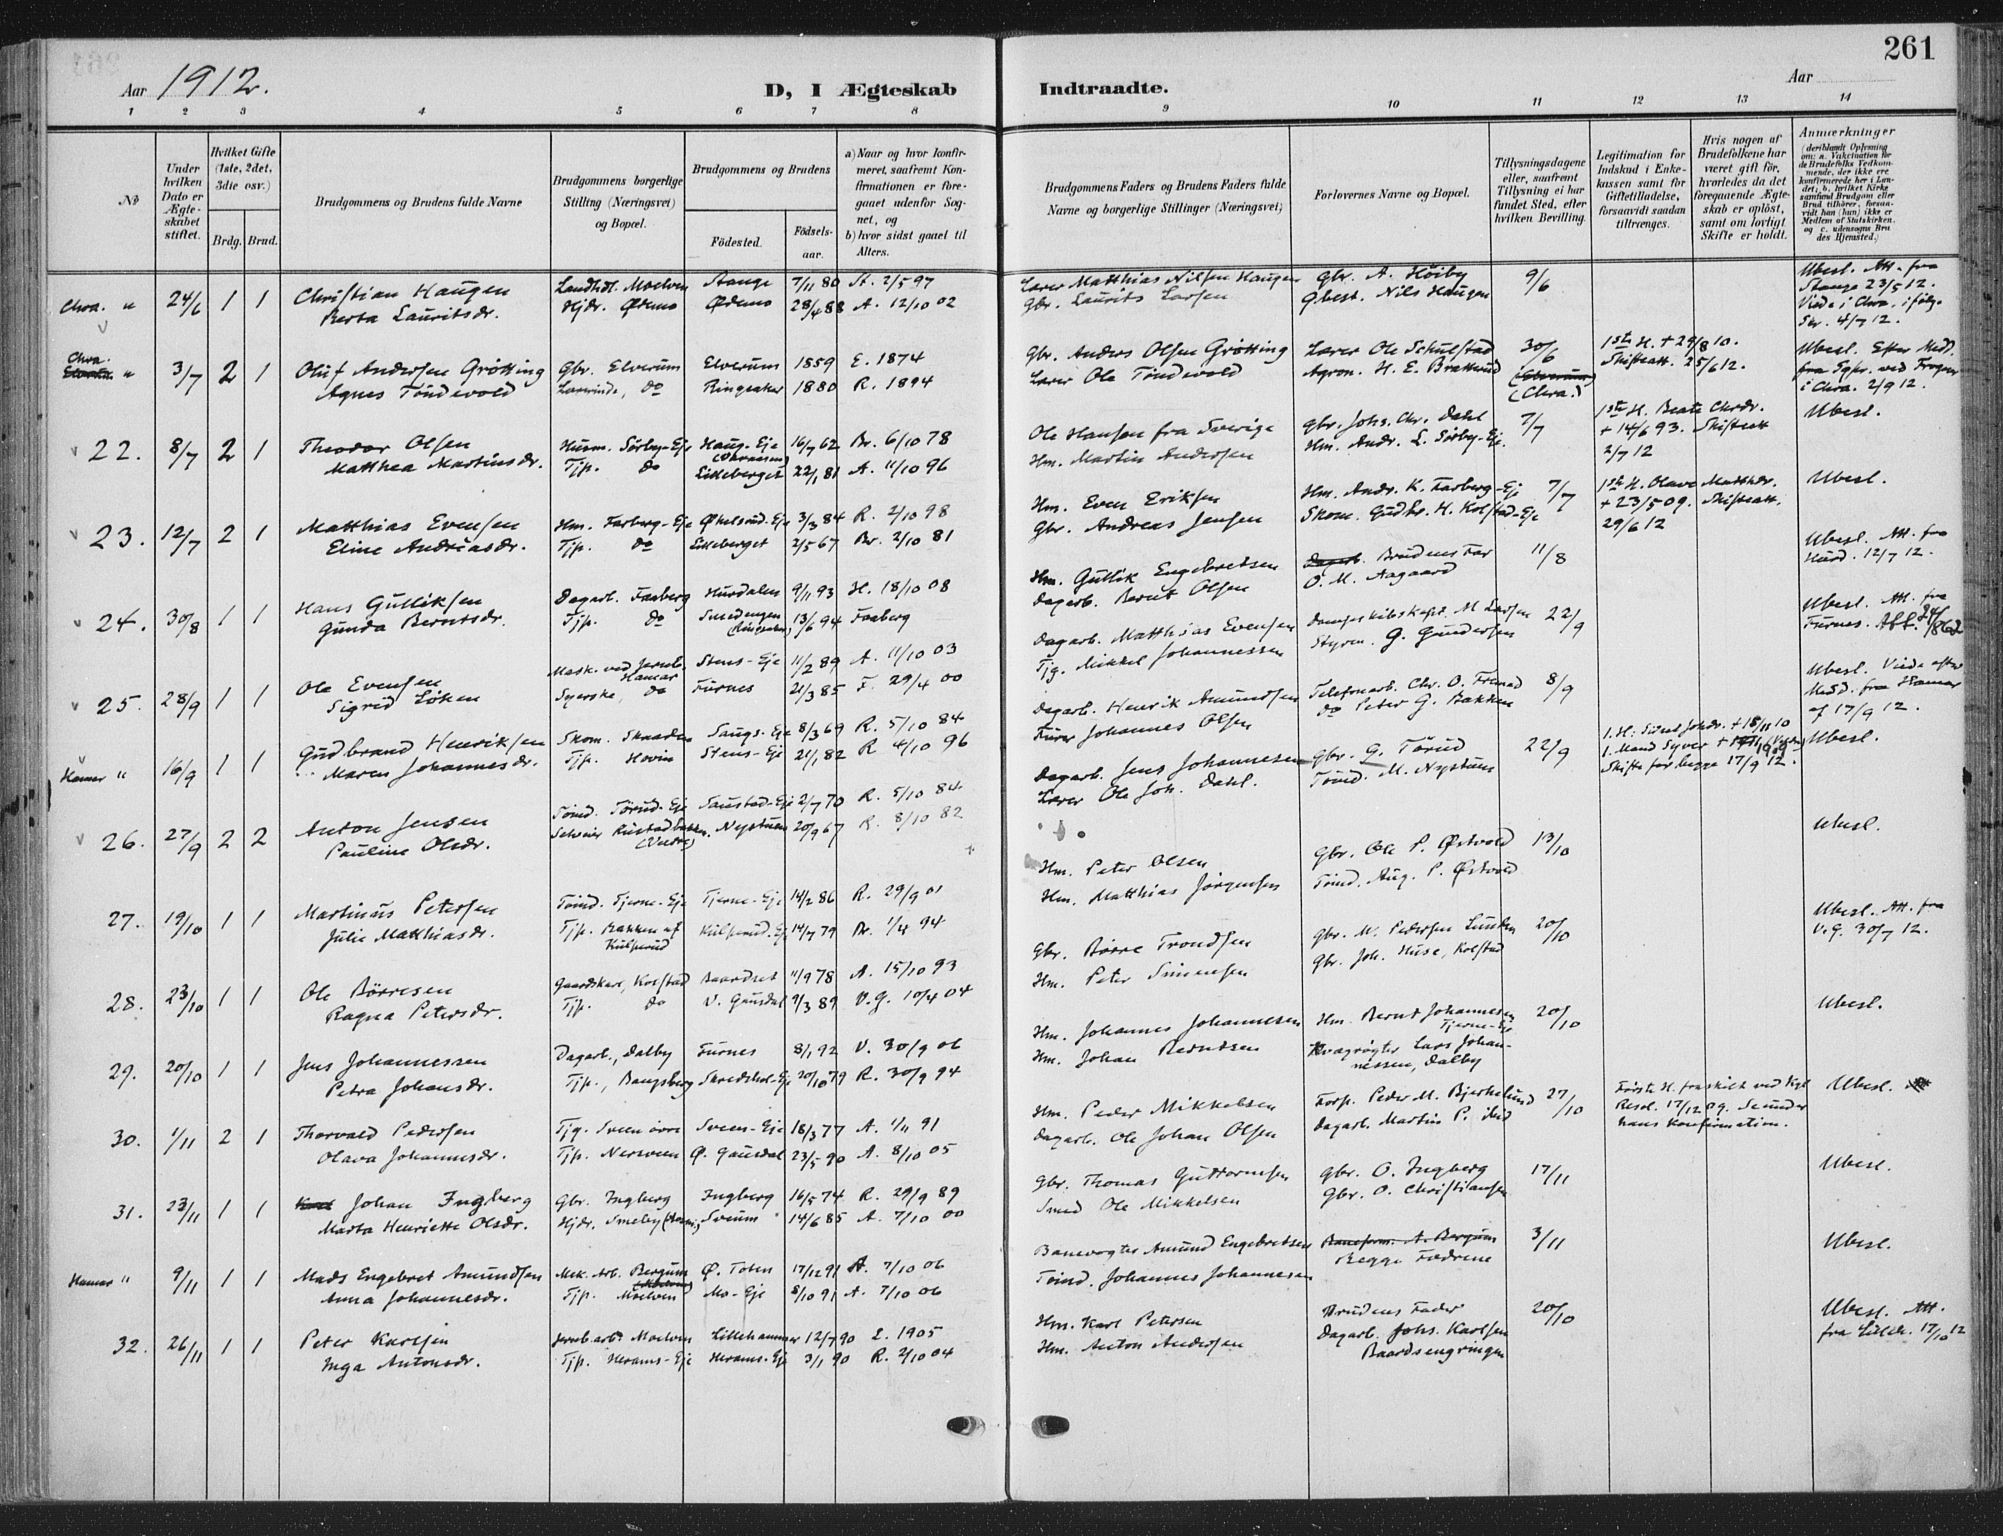 261
Aar 1912.
D, I Ægteskab Indtraadte.
Aar
1 2 3 4 5 6 7 8 9 10 11 12 13 14
No
Under hvilken Dato er Ægteskabet stiftet.
Hvilket Gifte (1ste, 2det, 3die osv.)
Brdg. Brud.
Brudgommens og Brudens fulde Navne
Brudgommens borgerlige Stilling (Næringsvei) og Bopæl.
Brudgommens og Brudens
Födested.
Födselsaar.
a) Naar og hvor konfirmeret, saafremt Konfirmationen er foregaaet udenfor Sognet, og
b) hvor sidst gaaet til Alters.
Brudgommens Faders og Brudens Faders fulde Navne og borgerlige Stillinger (Næringsvei)
Forlovernes Navne og Bopæl.
Tillysningsdagene eller, saafremt Tillysning ei har fundet Sted, efter hvilken Bevilling.
Legitimation for Indskud i Enkekassen samt for Giftetilladelse, forsaavidt saadan tiltrænges.
Hvis nogen af Brudefolkene har været gift før, hvorledes da det foregaaende Ægteskab er oplöst, samt om lovligt Skifte er holdt.
Anmærkninger
(deriblandt Oplysning om: a. Vakcination for de Brudefolks Vedkommende, der ikke ere konfirmerede her i Landet; b. hvilket Kirkesamfund Brudgom eller Brud tilhörer, forsaavidt han (hun) ikke er Medlem af Statskirken, og c. udensogns Brudes Hjemsted.)
Chra. " 24/6 1 1 Christian Haugen Landhdl. Moelven Stange 7/11 80 St. 2/5 97 Lærer Matthias Nilsen Haugen Gbr. A. Höiby 9/6 Ubesl. Att. fra
Berta Lauritsdr. Hjdr. Ödemo Ödemo 28/4 88 A. 12/10 02 Gbr. Laurits Larsen Gbest. Nils Haugen Stange 23/5 12.
Viede i Chra. i følge
4/7 12.
Chra. " 3/7 2 1 Oluf Andersen Grötting Gbr. Elverum Elverum 1859 E. 1874 Gbr. Anders Olsen Grötting Lærer Ole Schulstad 30/6 1ste H. + 29/8 10. Ubesl. Efter Medd.
Agnes Töndevold Lærerinde, do Ringsaker 1880 R. 1894 Lærer Ole Töndevold Agron. H. E. Bratterud (Chra.) Skifteatt. 25/6 12. fra Spr. ved Frogner
i Chra. 2/9 12.
22. 8/7 2 1 Theodor Olsen Husm. Sörby-Eje Haug-Eje 16/7 62 Br. 6/10 78 Ole Hansen fra Sverige Gbr. Johs. Chr. Dahl 7/7 1ste H. Beate Chrdr. Ubesl.
Matthea Martinsdr. Tjp. do Lilleberget 22/1 81 A. 11/10 96 Hm. Martin Andersen Hm. Andr. L. Sörby-Eje. + 14/6 93. Skifteatt
2/7 12
23. 12/7 2 1 Matthias Evensen Hm. Farberg-Eje Ökelsrud-Eje 3/3 84 R. 2/10 98 Hm. Even Eriksen Hm. Andr. K. Farberg-Eje 7/7 1ste H. Olava Matthdr. Ubesl.
Eline Andreasdr. Tjp. do Lilleberget 2/5 67 Br. 2/10 81 Gbr. Andreas Jensen Skom. Gudbr. H. Kolstad-Eje + 23/5 09. Skifteatt.
29/6 12
24. 30/8 1 1 Hans Gulliksen Dagarb. Faaberg Hurdalen 9/11 93 H. 18/10 08 Hm. Gullik Engebretsen Brudens Far 11/8 Ubesl. Att. fra
Gunda Berntsdr. Tjp. do Smedengen (Ringsaker) 13/6 94 Faaberg Dagarb. Bernt Olsen O. M. Aagaard Hurd. 12/7 12.
25. 28/9 1 1 Ole Evensen Mask. ved Jernb. Hamar Stens-Eje 11/2 89 A. 11/10 03 Dagarb. Matthias Evensen Dampskibskapt. M Larsen 22/9 Ubesl. Att. fra
Sigrid Löken Syerske, do Furnes 21/3 85 F. 29/4 00 Tjg. Mikkel Johannessen Styrm. G. Gundersen Furnes.
Hamar " 16/9 1 1 Gudbrand Henriksen Skom. Skaaden Saugs-Eje 8/3 69 R. 5/10 84 Dagarb. Henrik Amundsen Telefonarb. Chr. O. Frenad 8/9 Ubesl. Viede efter
Maren Johannesdr. Tjp. Hovin Stens-Eje 21/1 82 R 4/10 96 Furer Johannes Olsen do Peter G. Bakken Medd. fra Hamar
af 17/9 12.
26. 27/9 2 2 Anton Jensen Tömd. Törud-Eje Saustad-Eje 2/7 70 R. 5/10 84 Dagarb. Jens Johannesen Gbr. G. Törud 22/9 + 18/11 10 Ubesl.
Pauline Olsdr. Nystuen 20/9 67 R. 8/10 82 Lærer Ole Joh. Dahl. Tömd. M. Nystuen Skifte for begge 17/9 12.
27. 19/10 1 1 Martinus Petersen Tömd. Tjerne-Eje Tjerne-Eje 14/2 86 R. 29/9 01 Hm. Peter Olsen Gbr. Ole P. Östvold 13/10 Ubesl.
Julie Matthiasdr. Tjp. Bakken af Kulsrud Kulsrud-Eje 14/7 79 Br. 1/4 94 Hm. Matthias Jörgensen Tömd. Aug. P. Östvold
28. 23/10 1 1 Ole Börresen Gaardskar, Kolstad Baardset 11/9 78 A. 15/10 93 Gbr. Börre Trondsen Gbr. M. Pedersen Lunden 20/10 Ubesl. Att. fra
Ragna Petersdr. Tjp. do V. Gausdal 9/3 89 V.G. 10/4 04 Hm. Peter Simensen Gbr. Joh. Huse, Kolstad V.G. 30/7 12.
29. 20/10 1 1 Jens Johannessen Dagarb., Dalby Furnes 8/1 92 V. 30/9 06 Hm. Johannes Johannesen Hm. Bernt Johannesen Tjerne-Eje 20/10 Ubesl.
Petra Johansdr. Tjp., Bangsberg Skredshol-Eje 20/10 79 R. 30/9 94 Hm. Johan Berntsen Kvægrögter Lars Johannessen, Dalby
30. 1/11 2 1 Thorvald Pedersen Tjg. Sveen övre Sveen-Eje 18/3 77 A. 1/11 91 Hm. Peder Mikkelsen Forp. Peder M. Bjerkelund 27/10 Förste H. fraskilt ved Kgl Ubesl.
Olava Johannesdr. Tjp. Nersveen Ö. Gausdal 23/5 90 A. 8/10 05 Dagarb. Ole Johan Olsen Dagarb. Martin P. ibid Resol. 17/12 09. Se under
hans Konfirmation.
31. 23/11 1 1 Johan Ingberg Gbr. Ingberg Ingberg 16/5 74 R. 29/9 89 Gbr. Thomas Guttormsen Gbr. O. Ingberg 17/11 Ubesl.
Marta Henriette Olsdr. Hjdr. Smeby Sveum 14/6 85 A. 7/10 00 Smed Ole Mikkelsen Gbr. O. Christiansen
Hamar " 9/11 1 1 Mads Engebret Amundsen Mek. Arb. Bergum Ö. Toten 17/12 91 A. 7/10 06 Banevogter Amund Engebretsen Baneform. A. Bergum 3/11 Ubesl.
Anna Johannesdr. Tjp. Moelven Mo-Eje 8/10 91 A. 7/10 06 Tömd. Johannes Johannesen Begge Fædrene
32. 26/11 1 1 Peter Karlsen Jernb.arb. Moelven Lillehammer 12/7 90 L. 1905 Hm. Karl Petersen Brudens Fader 20/10 Ubesl. Att.
Inga Antonsdr. Tjp. Herams-Eje Herams-Eje 3/1 90 R. 2/10 04 Hm. Anton Andersen Dagarb. Johs. Karlsen fra Lilleh. 17/10 12
Baardsengringen